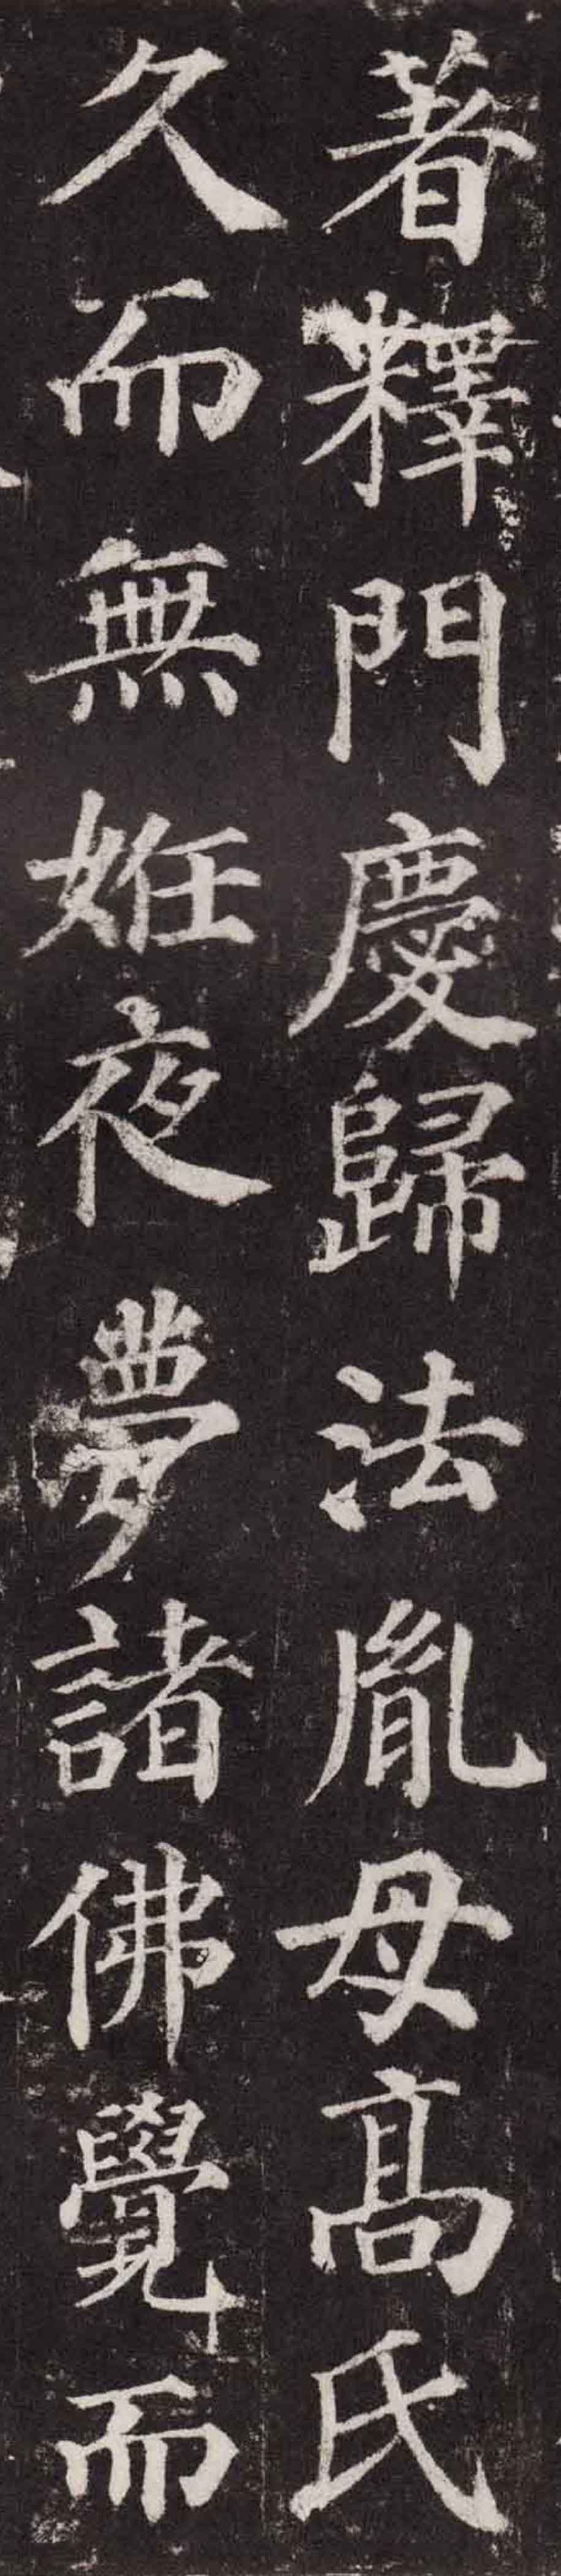 著釋門慶歸法胤母高氏
久而無姙夜夢諸佛覺而